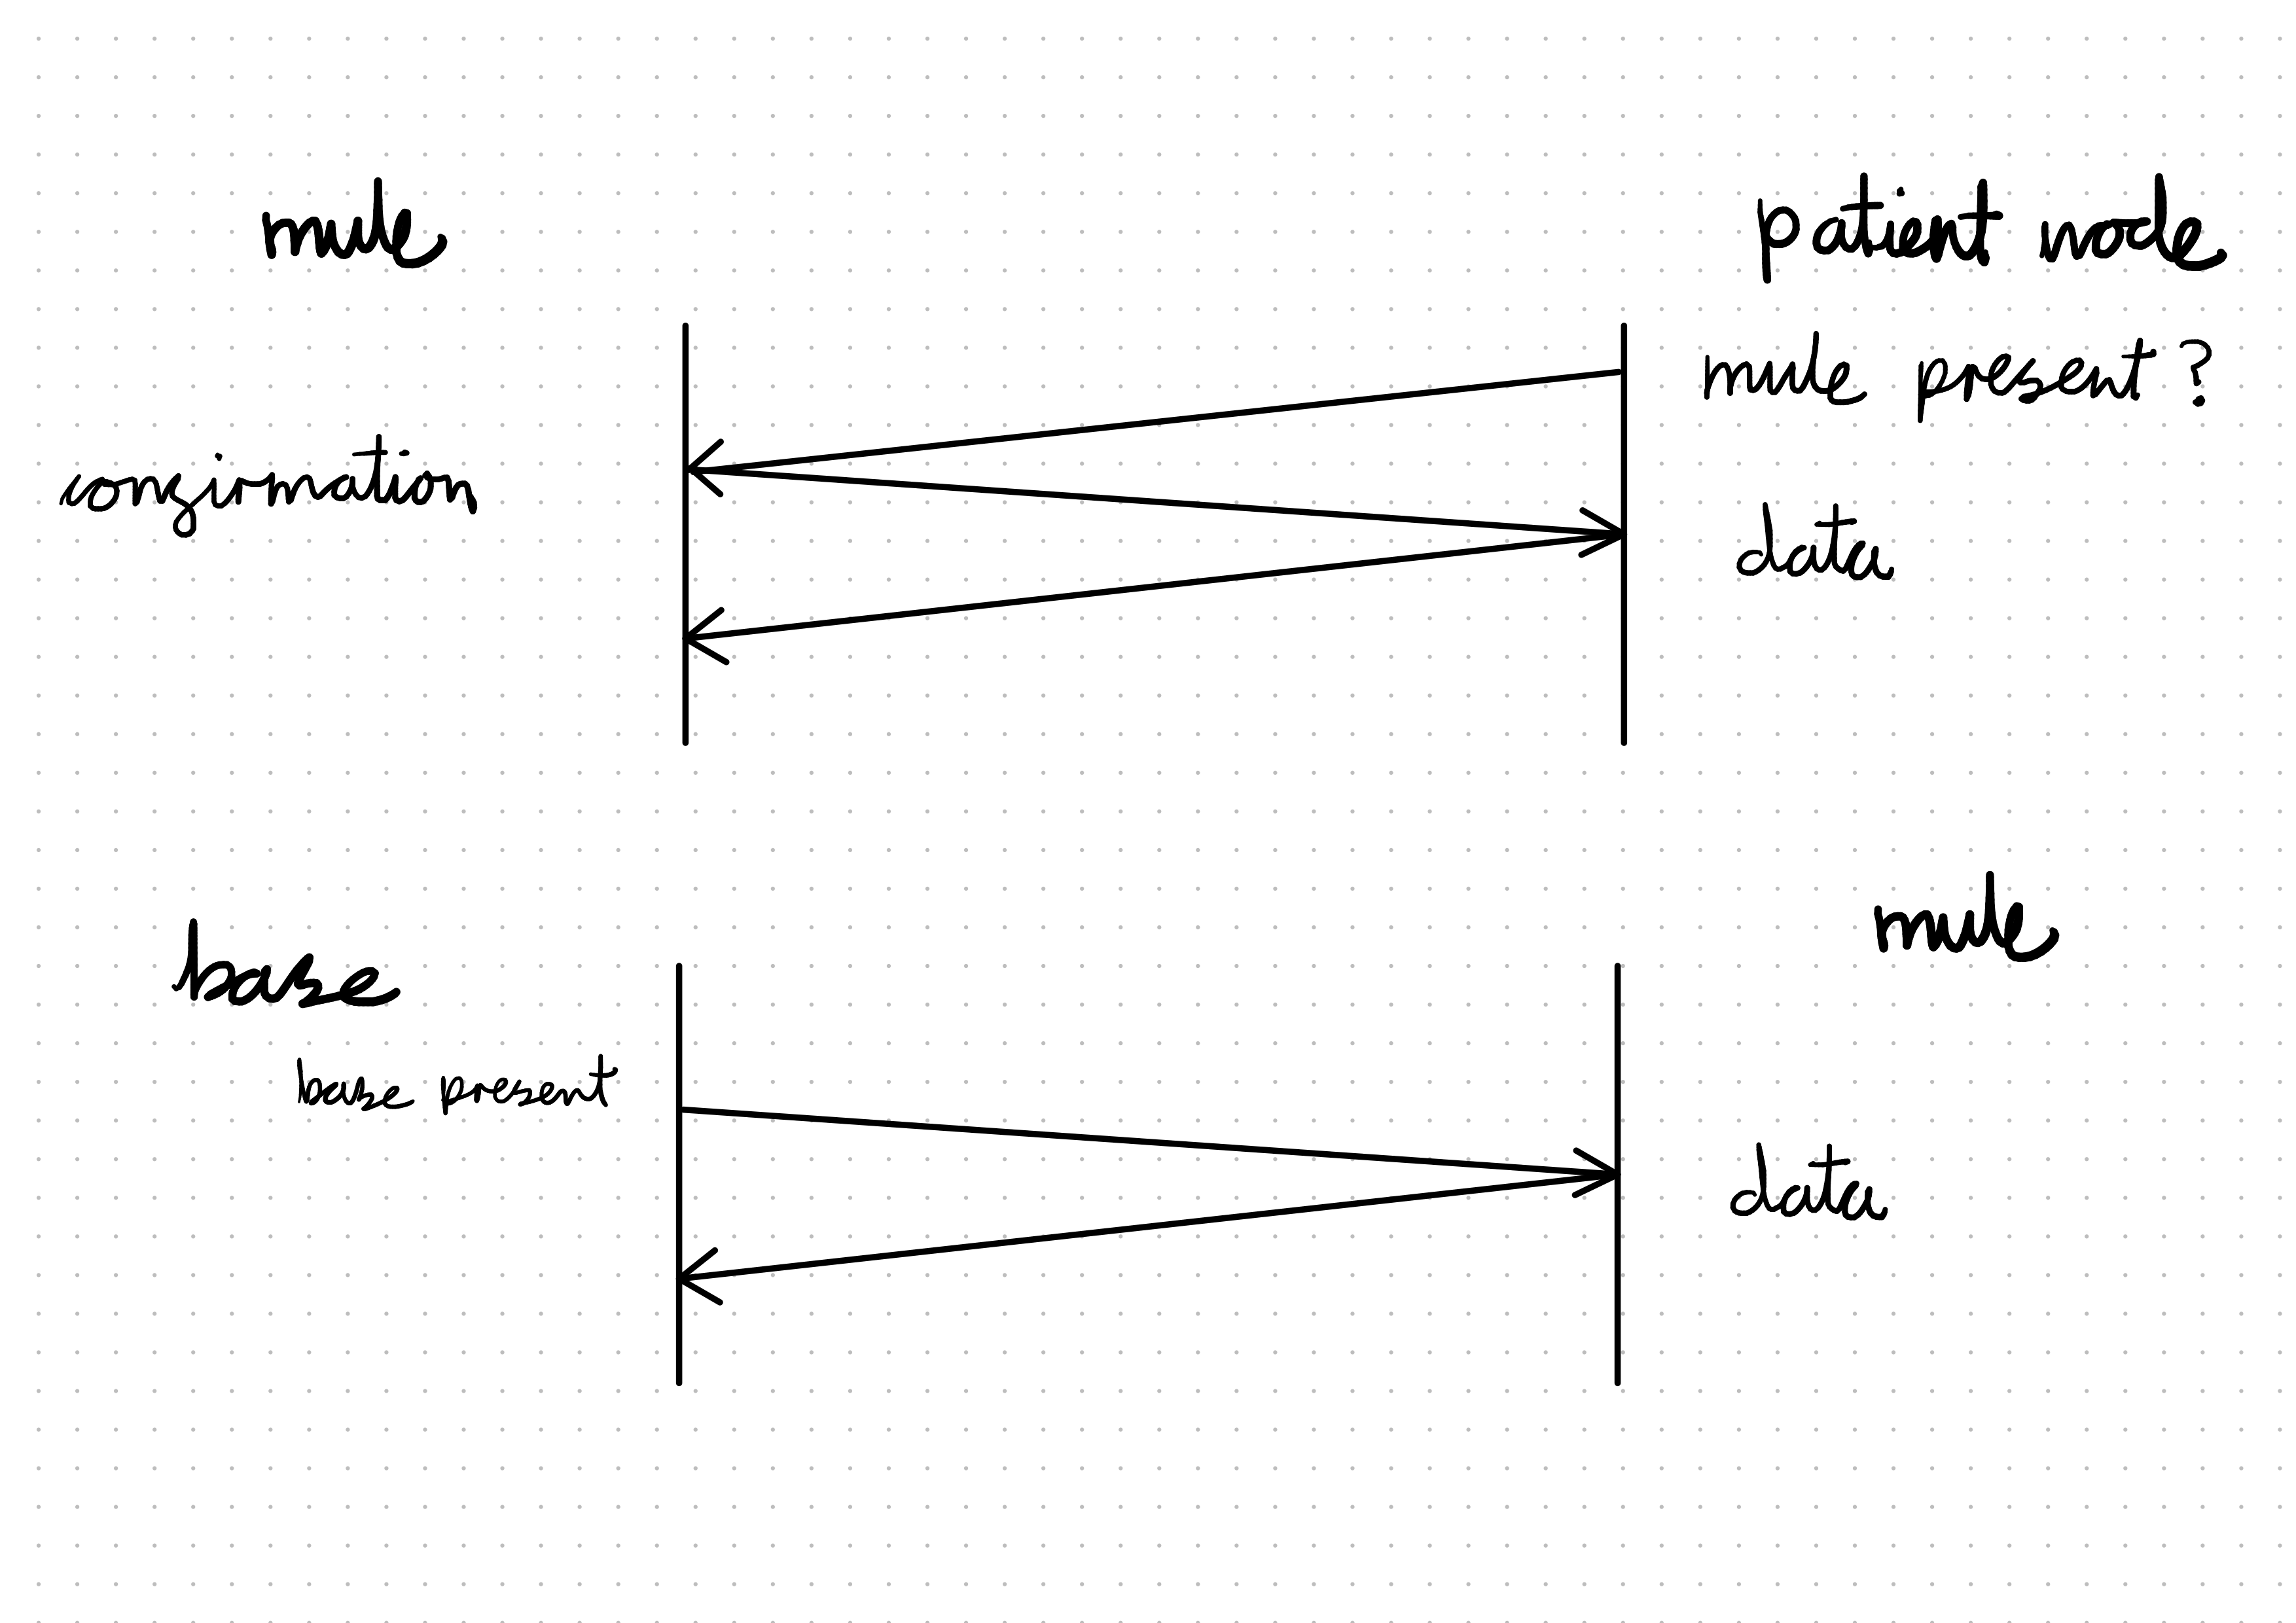 mule
patient node
mule present ?
confirmation
data
mule
base
base present
data